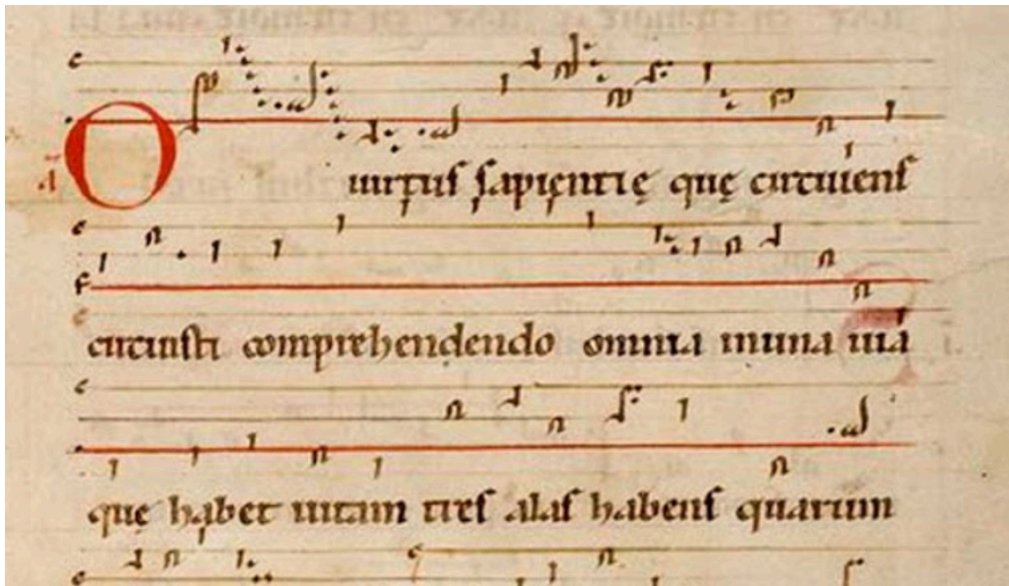 O uirtus sapientię quę circuiens
circuisti comprehendendo omnia in una uia
quę habet uitam tres alas habens quarum